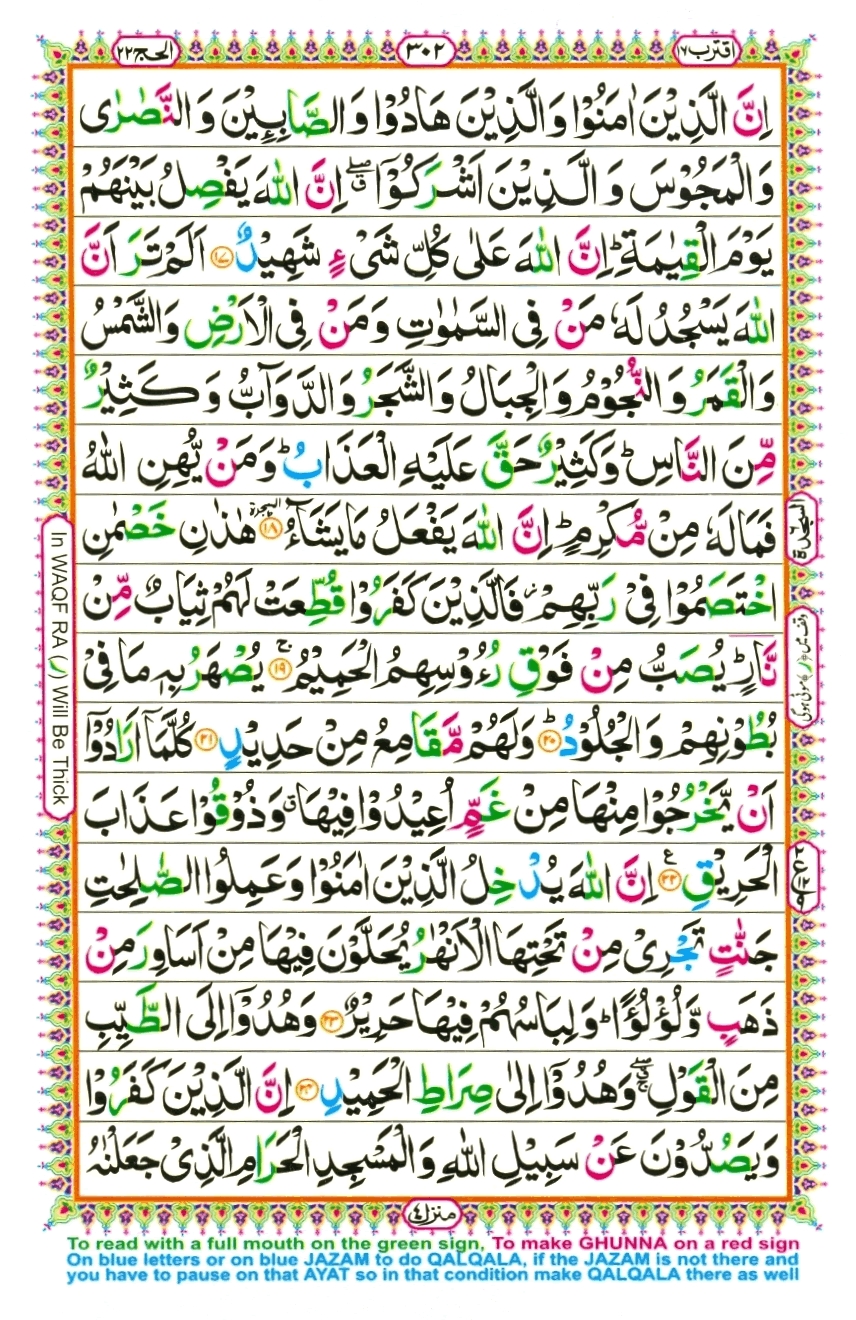 اقترب ١٧
٣٠٢
الحج ٢٢
اِنَّ الَّذِيْنَ اٰمَنُوْا وَالَّذِيْنَ هَادُوْا وَالصَّابِـِٕيْنَ وَالنَّصٰرٰى
وَالْمَجُوْسَ وَالَّذِيْنَ اَشْرَكُوْۤا ۖق اِنَّ اللّٰهَ يَفْصِلُ بَيْنَهُمْ
يَوْمَ الْقِيٰمَةِ ؕ اِنَّ اللّٰهَ عَلٰى كُلِّ شَىْءٍ شَهِيْدٌ ١٧ اَلَمْ تَرَ اَنَّ
اللّٰهَ يَسْجُدُ لَهٗ مَنْ فِى السَّمٰوٰتِ وَمَنْ فِى الْاَرْضِ وَالشَّمْسُ
وَالْقَمَرُ وَالنُّجُوْمُ وَالْجِبَالُ وَالشَّجَرُ وَالدَّوَآبُّ وَكَثِيْرٌ
مِّنَ النَّاسِ ؕ وَكَثِيْرٌ حَقَّ عَلَيْهِ الْعَذَابُ ؕ وَمَنْ يُّهِنِ اللّٰهُ
فَمَا لَهٗ مِنْ مُّكْرِمٍ ؕ اِنَّ اللّٰهَ يَفْعَلُ مَا يَشَآءُ ١٨ السجدة هٰذٰنِ خَصْمٰنِ
السجدة
اخْتَصَمُوْا فِىْ رَبِّهِمْ ز فَالَّذِيْنَ كَفَرُوْا قُطِّعَتْ لَهُمْ ثِيَابٌ مِّنْ
نَّارٍ ؕ يُصَبُّ مِنْ فَوْقِ رُءُوْسِهِمُ الْحَمِيْمُ ۚ ١٩ يُصْهَرُ بِهٖ مَا فِىْ
وقف میں (ر) موٹی ہوگی
In WAQF RA (ر) Will Be Thick
بُطُوْنِهِمْ وَالْجُلُوْدُ ؕ ٢٠ وَلَهُمْ مَّقَامِعُ مِنْ حَدِيْدٍ ٢١ كُلَّمَاۤ اَرَادُوْۤا
اَنْ يَّخْرُجُوْا مِنْهَا مِنْ غَمٍّ اُعِيْدُوْا فِيْهَا ق وَذُوْقُوْا عَذَابَ
الْحَرِيْقِ ٢٢ ع اِنَّ اللّٰهَ يُدْخِلُ الَّذِيْنَ اٰمَنُوْا وَعَمِلُوا الصّٰلِحٰتِ
جَنّٰتٍ تَجْرِىْ مِنْ تَحْتِهَا الْاَنْهٰرُ يُحَلَّوْنَ فِيْهَا مِنْ اَسَاوِرَ مِنْ
ذَهَبٍ وَّلُؤْلُؤًا ؕ وَلِبَاسُهُمْ فِيْهَا حَرِيْرٌ ٢٣ وَهُدُوْۤا اِلَى الطَّيِّبِ
مِنَ الْقَوْلِ ۖۚ وَهُدُوْۤا اِلٰى صِرَاطِ الْحَمِيْدِ ٢٤ اِنَّ الَّذِيْنَ كَفَرُوْا
وَيَصُدُّوْنَ عَنْ سَبِيْلِ اللّٰهِ وَالْمَسْجِدِ الْحَرَامِ الَّذِىْ جَعَلْنٰهُ
منزل ٤
To read with a full mouth on the green sign, To make GHUNNA on a red sign
On blue letters or on blue JAZAM to do QALQALA, if the JAZAM is not there and
you have to pause on that AYAT so in that condition make QALQALA there as well